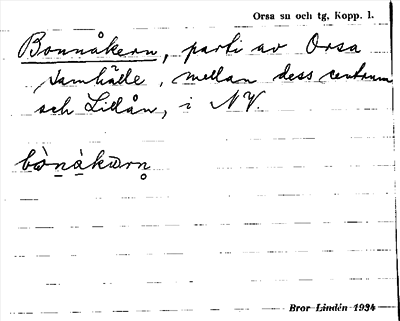 Orsa sn och tg. Kopp. l.
Bonnåkern, parti av Orsa
samhälle, mellan dess centrum
och Lillån, i NV.
bònàkærn̥
Bror Lindén 1934